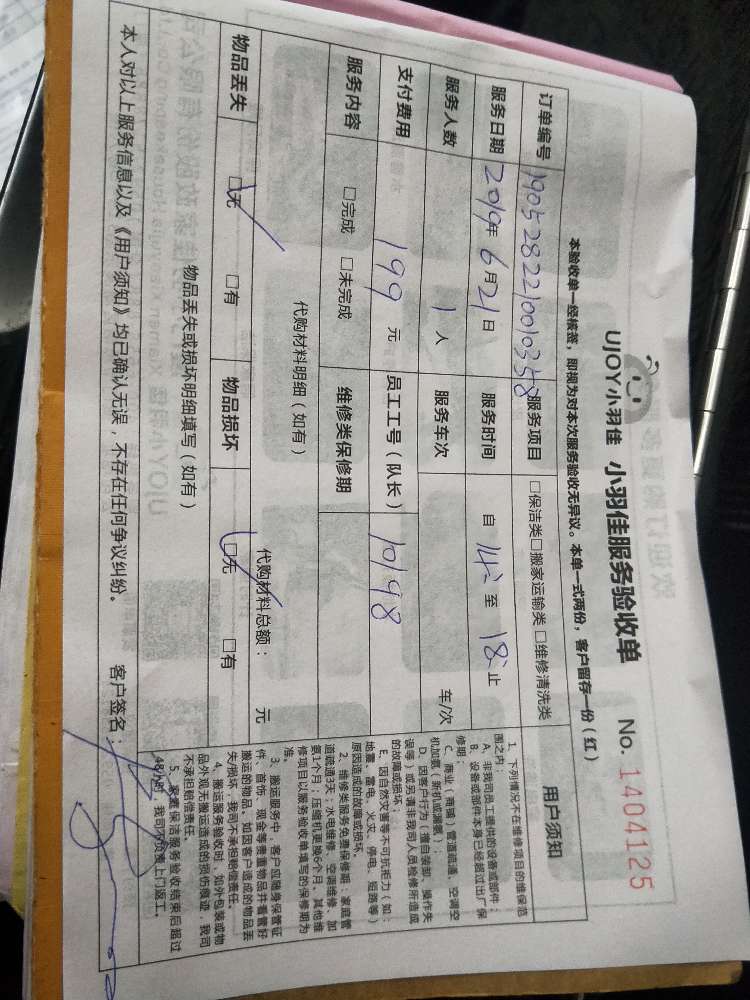 UJOY小羽佳 小羽佳服务验收单 No. 1404125
本验收单一经核签，即视为对本次服务验收无异议。本单一式两份，客户留存一份（红）
订单编号 1905282210010358 服务项目 □保洁类□搬家运输类□维修清洗类
服务日期 2019年6月21日 服务时间 自 14: 至 18: 止
服务人数 1 人 服务车次 车/次
支付费用 199 元 员工工号（队长） 10198
服务内容 □完成 □未完成 维修类保修期
代购材料明细（如有） 代购材料总额： 元
物品丢失 □无 □有 物品损坏 □无 □有
物品丢失或损坏明细填写（如有）
用户须知
1、下列情况不在维修项目的维保范
围之内：
A、非我司员工提供的设备或部件；
B、设备或部件本身已经超过出厂保
修期；
C、商业（商铺）管道疏通、空调空
机加氨（新机或漏氨）；
D、因客户行为（擅自装卸、操作失
误等）或另请非我司人员检修所造成
的故障或损坏；
E、因自然灾害等不可抗拒力（如：
地震、雷电、火灾、停电、短路等）
原因造成的故障或损坏。
2、维修类服务免费保修期：家庭管
道疏通3天；水电维修、空调维修、加
氨1个月；压缩机更换6个月、其他维
修项目以服务验收单填写的保修期为
准。
3、搬运服务中，客户应随身保管证
件、首饰、现金等贵重物品并看管好
搬运的物品。如因客户造成的物品丢
失/损坏，我司不承担赔偿责任。
4、搬运服务验收时，如外包装或物
品外观无搬运造成的损伤痕迹，我司
不承担赔偿责任。
5、家庭保洁服务验收结束后超过
48小时，我司不负责上门返工。
本人对以上服务信息以及《用户须知》均已确认无误，不存在任何争议纠纷。 客户签名：